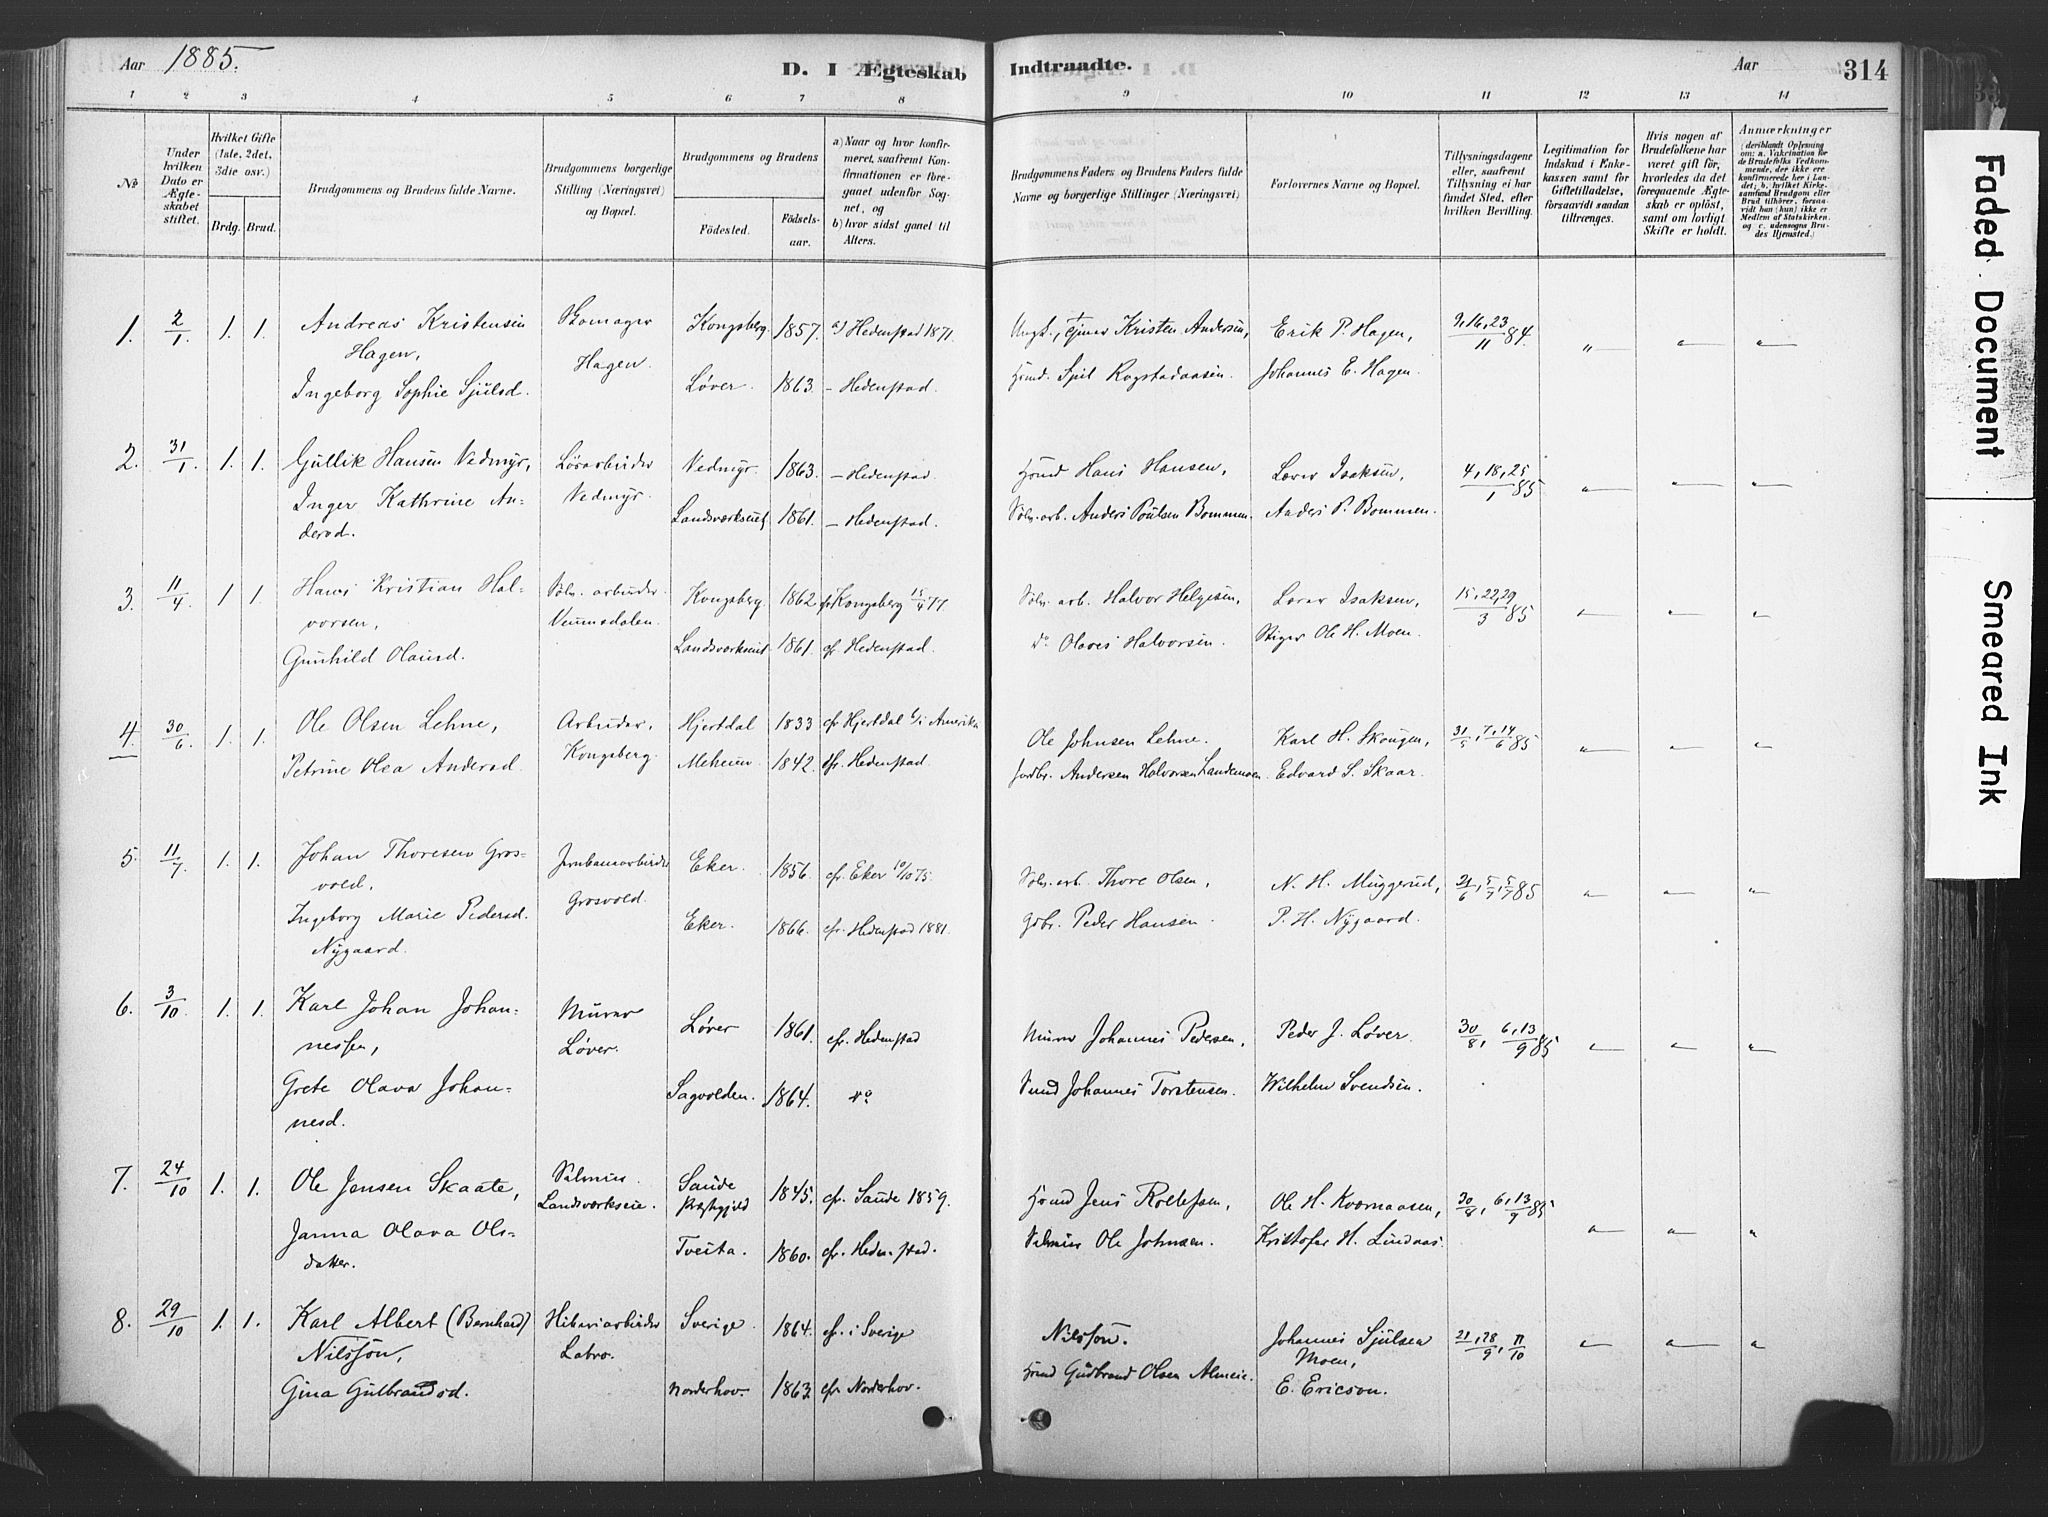 Aar 1885.
D. I Ægteskab Indtraadte.
Aar
314
1 2 3 4 5 6 7 8 9 10 11 12 13 14
No
Under hvilken Dato er Ægteskabet stiftet.
Hvilket Gifte (1ste, 2det, 3die osv.)
Brdg. Brud.
Brudgommens og Brudens fulde Navne.
Brudgommens borgerlige Stilling (Næringsvei) og Bopæl.
Brudgommens og Brudens
Fødested.
Fødselsaar.
a) Naar og hvor konfirmeret, saafremt Konfirmationen er foregaaet udenfor Sognet, og
b) hvor sidst gaaet til Alters.
Brudgommens Faders og Brudens Faders fulde Navne og borgerlige Stillinger (Næringsvei)
Forlovernes Navne og Bopæl.
Tillysningsdagene eller, saafremt Tillysning ei har fundet Sted, efter hvilken Bevilling.
Legitimation for Indskud i Enkekassen samt for Giftetilladelse, forsaavidt saadan tiltrænges.
Hvis nogen af Brudefolkene har været gift før, hvorledes da det foregaaende Ægteskab er opløst, samt om lovligt Skifte er holdt.
Anmærkninger
(deriblandt Oplysning om: a. Vakcination for de Brudefolks Vedkommende, der ikke ere konfirmerede her i Landet; b. hvilket Kirkesamfund Brudgom eller Brud tilhører, forsaavidt han (hun) ikke er Medlem af Statskirken og c. udensogns Brudes Hjemsted.)
1. 2/1 1. 1. Andreas Kristensen Skomager Kongsberg. 1857. a) Hedenstad 1871. Ungk., Tjener Kristen Andersen, Erik P. Hagen, 9,16,23/11 84. „ „ „
Hagen, Hagen.
Ingeborg Sophie Sjulsd. Løver. 1863. – Hedenstad. Hmd. Sjul Rugstadaasen. Johannes E. Hagen.
2. 31/1. 1. 1. Gullik Hansen Vedmyr, Løsarbeider Vedmyr. 1863. – Hedenstad. Hmd Hans Hansen, Lærer Isaksen, 4, 18, 25/1 85 „ „ „
Inger Kathrine An- Vedmyr. Landsværkseiet 1861. – Hedenstad. Sølv. arb. Anders Poulsen Bommen. Anders P. Bommen.
dersd.
3. 11/4. 1 1. Hans Kristian Hal- Sølv. arbeider Kongsberg. 1862. cfr Kongsberg 15/4 77 Sølv. arb. Halvor Helgesen, Lærer Isaksen, 15,22,29/3 85 „ „ „
vorsen, Veumsdalen.
Gunhild Olausd. Landsværkseiet 1861. cfr Hedenstad. do Olaves Halvorsen. Stiger Ole H. Moen.
4. 30/6. 1. 1. Ole Olsen Lehne, Arbeider, Hjertdal 1833 cfr Hjertdal b/ i Amerika Ole Johnsen Lehne. Karl H. Skougen, 31/5, 7,14/6 85 „ „ „
Petrine Olea Andersd. Kongsberg. Meheim 1842. cfr. Hedenstad. Jordbr. Andersen Halvorsen Landemoen. Edvard S. Skaar.
5. 11/7. 1. 1. Johan Thoresen Gros- Jernbanearbeider Eker. 1856. cfr. Eker 10/10 75. Sølv. arb. Thore Olsen, N. H. Muggerud, 21/6, 5/7, 5/7 85 „ „ „
vold, Grosvold.
Ingeborg Marie Pedersd. Eker. 1866. cfr. Hedenstad 1881. Gdbr. Peder Hansen. P. H. Nygaard.
Nygaard.
6. 3/10. 1. 1. Karl Johan Johan- Murer Løver 1861. cfr. Hedenstad Murer Johannes Pedersen, Peder J. Løver. 30/8, 6,13/9 85 „ „ „
nessen, Løver.
Grete Olava Johan- Sagvolden. 1864. do Smed Johannes Torstensen. Wilhelm Svendsen.
nesd.
7. 24/10 1. 1. Ole Jensen Skaate, Sølvmin. Saude 1845. cfr. Saude 1859. Hmd Jens Rollefsen, Ole H. Kværnaasen, 30/8, 6,13/9 85 „ „ „
Landsværkseie. Præstgjeld
Janna Olava Ols- Tveita. 1860. cfr. Hedenstad. Sølvmin Ole Johnsen. Kristofer H. Lindaas.
datter.
8. 29/10 1. 1. Karl Albert (Bernhard) Sliberiarbeider Sverige. 1864. cfr. i Sverige Nilsson. Johannes Sjulsen 21, 28/9, 11/10 „ „ „
Nilsson, Labro. Moen,
Gina Gulbrandsd. Norderhov. 1863. cfr. Norderhov. Hmd Gudbrand Olsen Almeie. E. Ericson.
Faded Document
Smeared Ink